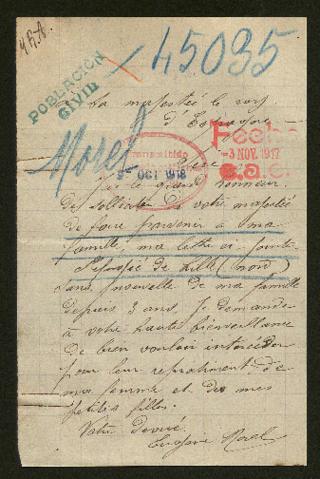 45035
POBLACIÓN
CIVIL
Morel
A sa majestée le roy
d'Espagne
Fecha
-3 NOV. 1917
S.a.c.
OCT 1918
J'ai le grand honneur
de solliciter de votre majestée
de faire parvenir à ma
famille ma lettre ci jointe
de Lille (nord)
sans nouvelle de ma famille
depuis 3 ans, Je demande
à votre haute bienveillance
de bien vouloir intercéder
pour leur rapatriment de
ma femme et des mes
petites filles.
Votre devoué
Eugène Morel